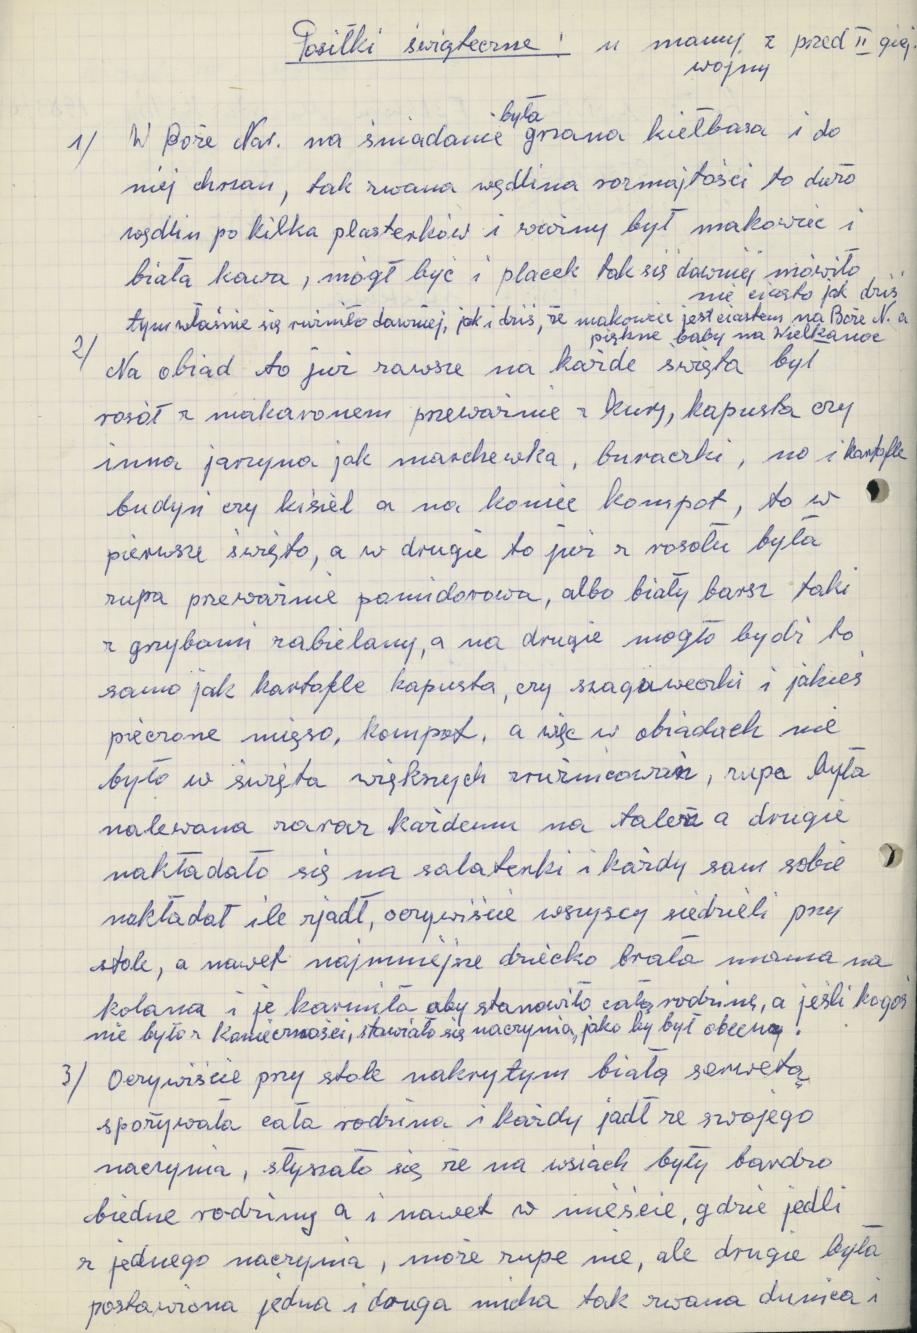 Posiłki świąteczne! u mamy z przed II giej.
wojny
1/ W Boże Nar. na śniadanie była grzana kiełbasa i do
niej chrzan, tak zwana wędlina rozmajtości to dużo
wędlin po kilka plasterków i ważny był makowiec i
biała kawa, mógł być i placek tak się dawniej mówiło
nie ciasto jak dziś
tym właśnie się różniło dawniej, jak i dziś, że makowiec jest ciastem na Boże N. a
piękne baby na Wielkanoc
2/ Na obiad to już zawsze na każde święta był
rosół z makaronem przeważnie z kury, kapusta czy
inna jarzyna jak marchewka, buraczki, no i kartofle
budyń czy kisiel a na koniec kompot, to w
pierwsze święto, a w drugie to już z rosołu była
zupa przeważnie pomidorowa, albo biały barsz taki
z grzybami zabielany, a na drugie mogło bydź to
samo jak kartofle kapusta, czy szagóweczki i jakieś
pieczone mięso, kompot, a więc w obiadach nie
było w święta większych zróżnicowań, zupa była
nalewana zaraz każdemu na talerz a drugie
nakładało się na salaterki i każdy sam sobie
nakładał ile zjadł, oczywiście wszyscy siedzieli przy
stole, a nawet najmniejsze dziecko brała mama na
kolana i je karmiła aby stanowiło całą rodzinę, a jeśli kogoś
nie było z konieczności, stawiało się naczynia, jako by był obecny.
3/ Oczywiście przy stole nakrytym białą serwetą
spożywała cała rodzina i każdy jadł ze swojego
naczynia, słyszało się że na wsiach były bardzo
biedne rodziny a i nawet w mieście, gdzie jedli
z jednego naczynia, może zupe nie, ale drugie była
postawiona jedna i druga micha tak zwana dunica i